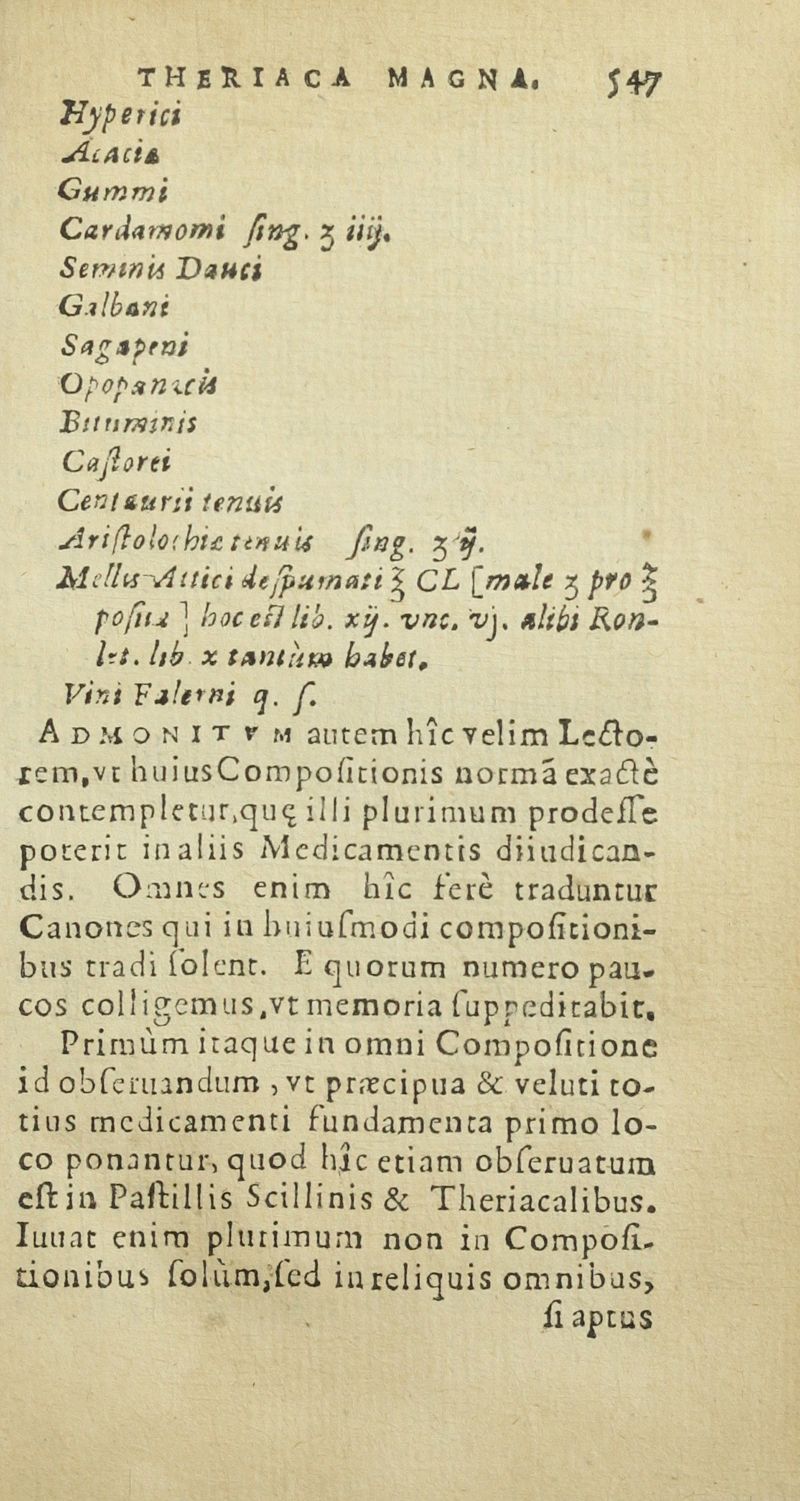 THERIACA MAGNA. 547
Hyperici
Acaciæ
Gummi
Cardamomi ſing. ʒ iiij.
Seminis Dauci
Galbani
Sagapeni
Opopanicis
Bituminis
Caſtorei
Centaurii tenuis
Ariſtolochiæ tenuis ſing. ʒ ij.
Mellis Attici deſpumati ℥ CL [male ʒ pro ℥
poſita] hoc eſt lib. xij. vnc. vj. alibi Ron-
let. lib. x tantùm habet.
Vini Falerni q. ſ.
ADMONITVM autem hîc velim Lecto-
rem, vt huius Compoſitionis normã exactè
contempletur, quę illi plurimum prodeſſe
poterit in aliis Medicamentis diiudican-
dis. Omnes enim hîc ferè traduntur
Canones qui in huiuſmodi compoſitioni-
bus tradi ſolent. E quorum numero pau-
cos colligemus, vt memoria ſuppeditabit.
Primùm itaque in omni Compoſitione
id obſeruandum, vt præcipua & veluti to-
tius medicamenti fundamenta primo lo-
co ponantur, quod hîc etiam obſeruatum
eſt in Paſtillis Scillinis & Theriacalibus.
Iuuat enim plurimum non in Compoſi-
tionibus ſolùm, ſed in reliquis omnibus,
ſi aptus